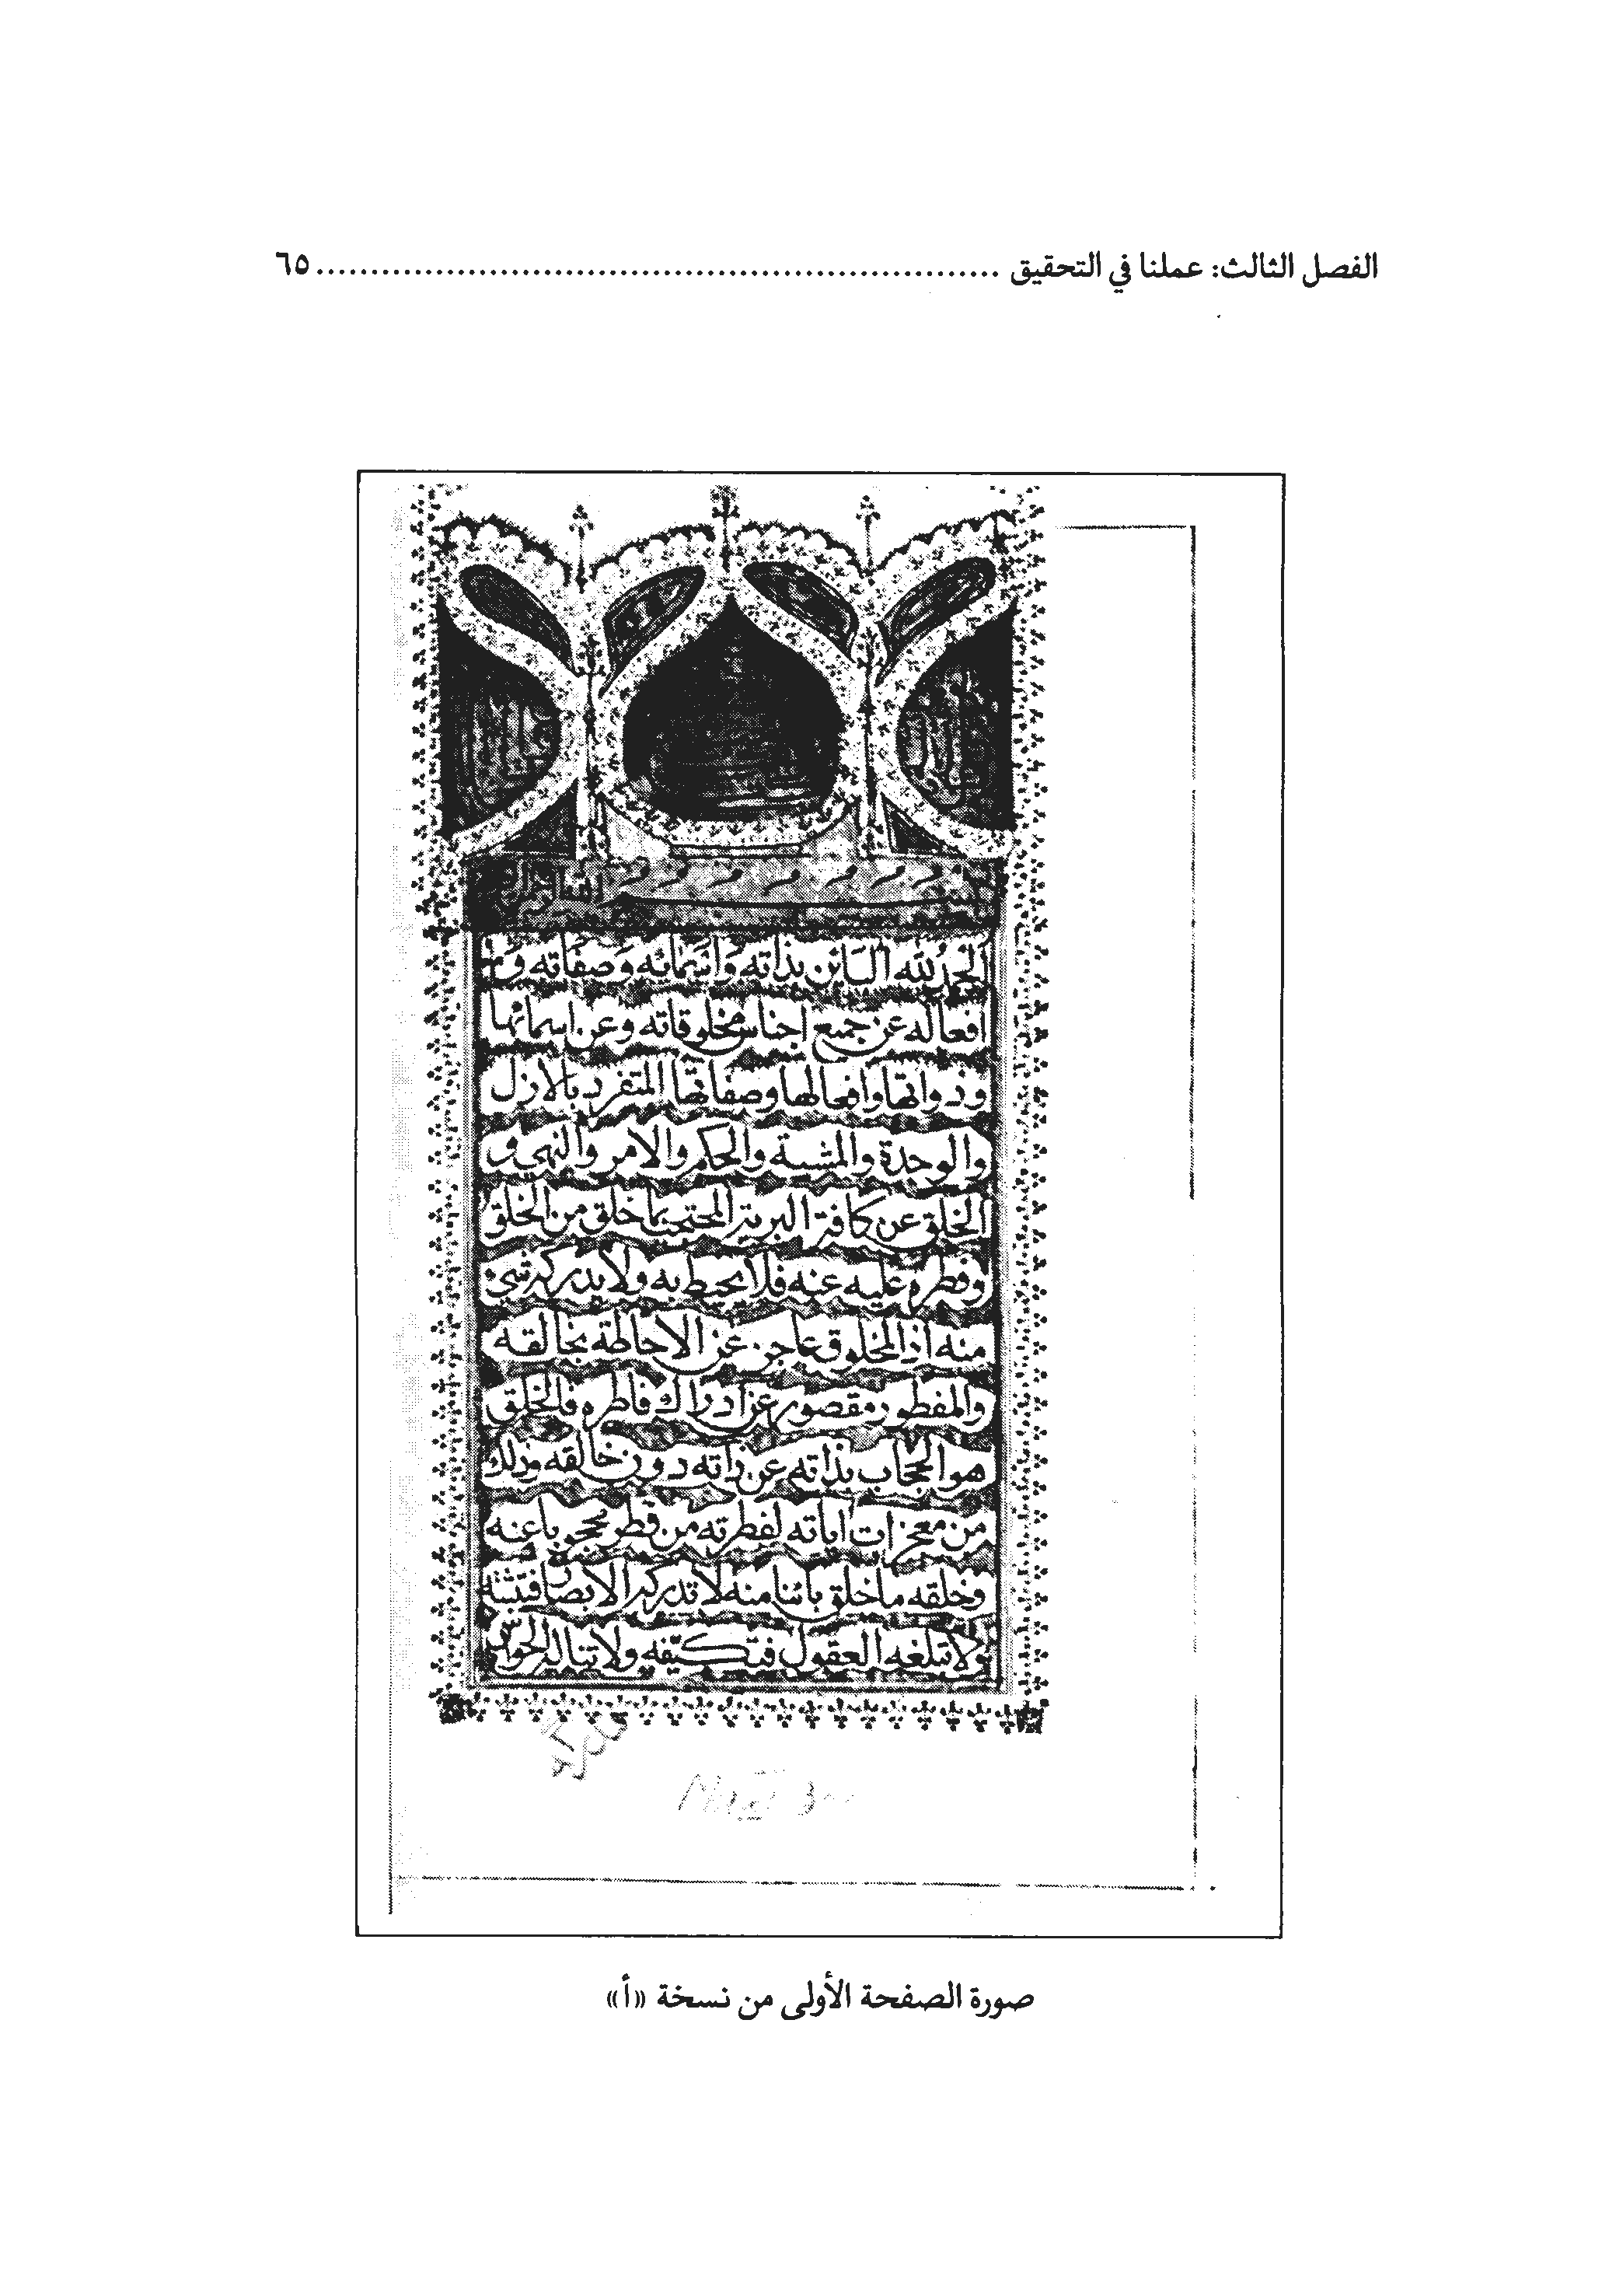 الفصل الثالث: عملنا في التحقيق ........................................................ ٦٥
بسم الله الرحمن الرحيم
الحمد لله البائن بذاته واسمائه وصفاته و
افعاله عن جميع اجناس مخلوقاته وعن اسمائها
وذواتها وافعالها وصفاتها المتفرد بالازل
والوحدة والمشية والحكم والامر والنهي و
الخلق عن كافة البرية المحتجب بما خلق من الخلق
وفطره عليه عنه فلا يحيط به ولا يدركه شيئ
منه اذ المخلوق عاجز عن الاحاطة بخالقه
والمفطور مقصور عن ادراك فاطره فالخلق
هو الحجاب بذاته عن ذاته دون خالقه وذلك
من معجزات اياته لفطرته من فطر محجوبا عنه
وخلقه ما خلق بائنا منه لا تدركه الابصار فتثبته
ولا تبلغه العقول فتكيّفه ولا تناله الحواس
صورة الصفحة الأولى من نسخة «أ»